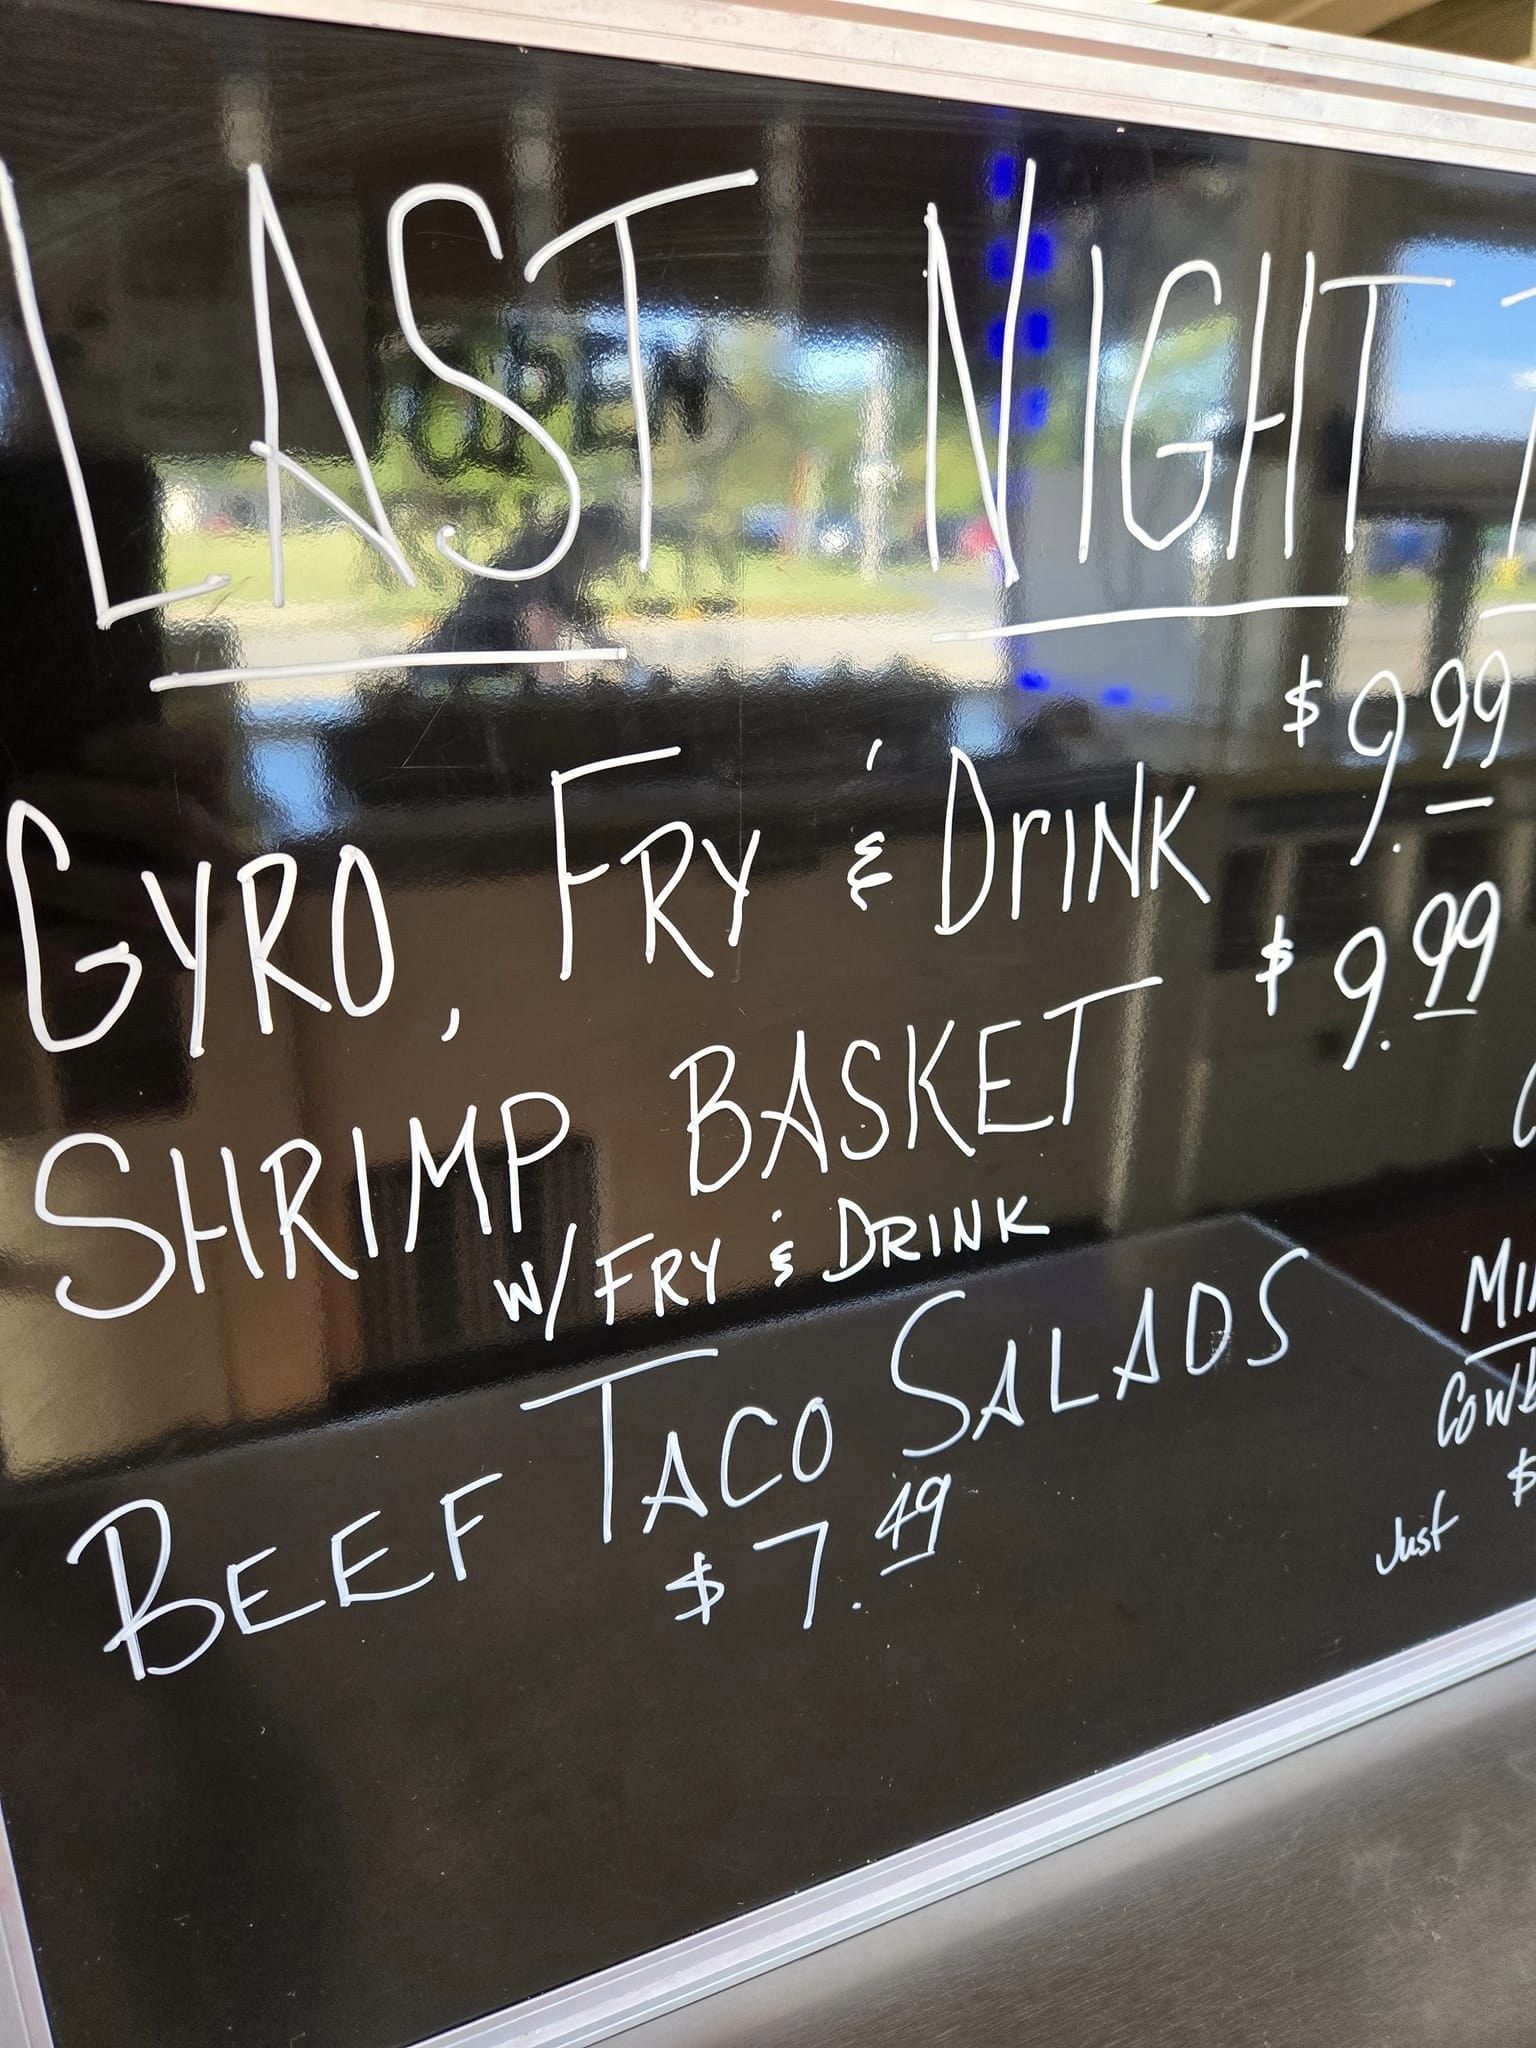 LAST NIGHT
$9.99
GYRO, FRY & DRINK
$9.99
SHRIMP BASKET
W/ FRY & DRINK
BEEF TACO SALADS
$7.49
Just $
OPEN